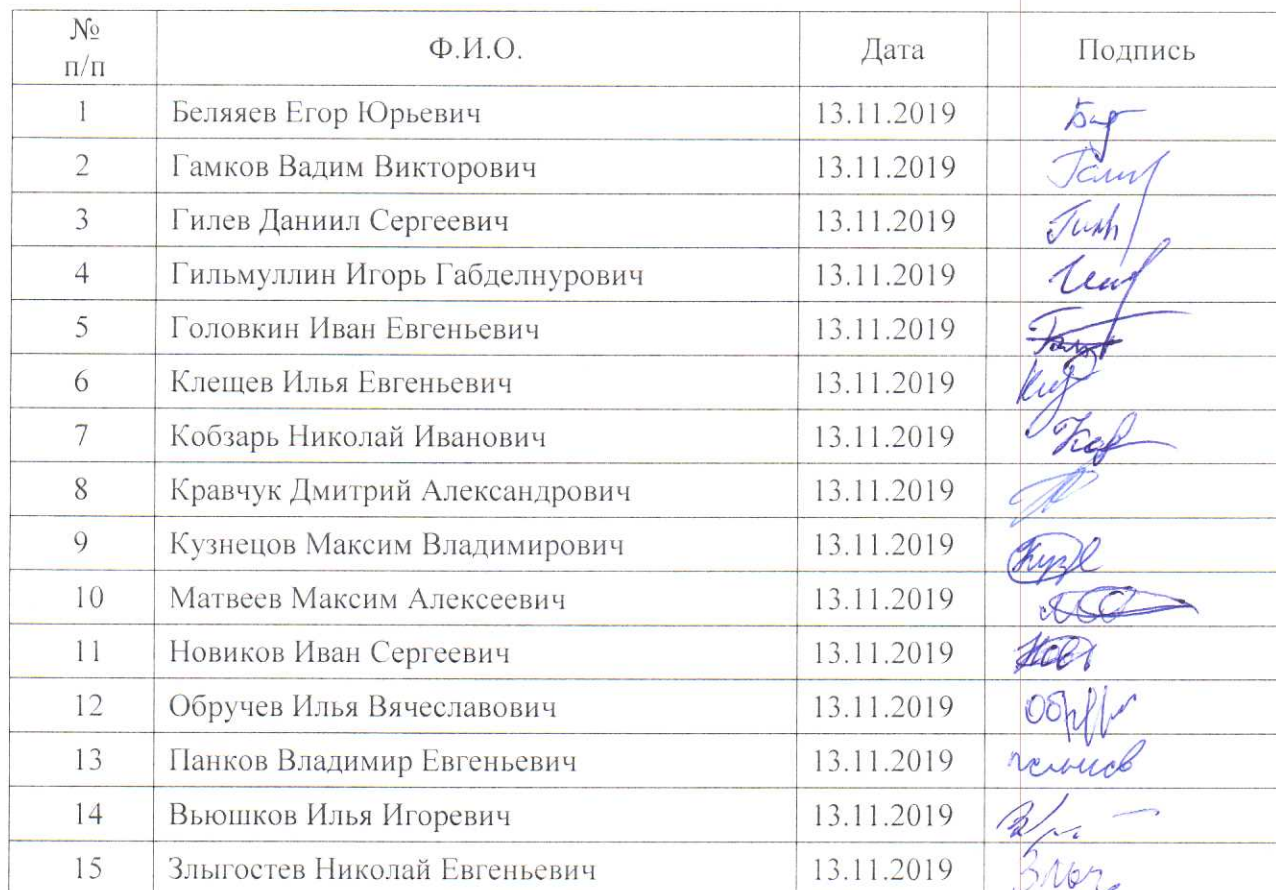 № п/п Ф.И.О. Дата Подпись
1 Беляяев Егор Юрьевич 13.11.2019
2 Гамков Вадим Викторович 13.11.2019
3 Гилев Даниил Сергеевич 13.11.2019
4 Гильмуллин Игорь Габделнурович 13.11.2019
5 Головкин Иван Евгеньевич 13.11.2019
6 Клещев Илья Евгеньевич 13.11.2019
7 Кобзарь Николай Иванович 13.11.2019
8 Кравчук Дмитрий Александрович 13.11.2019
9 Кузнецов Максим Владимирович 13.11.2019
10 Матвеев Максим Алексеевич 13.11.2019
11 Новиков Иван Сергеевич 13.11.2019
12 Обручев Илья Вячеславович 13.11.2019
13 Панков Владимир Евгеньевич 13.11.2019
14 Вьюшков Илья Игоревич 13.11.2019
15 Злыгостев Николай Евгеньевич 13.11.2019